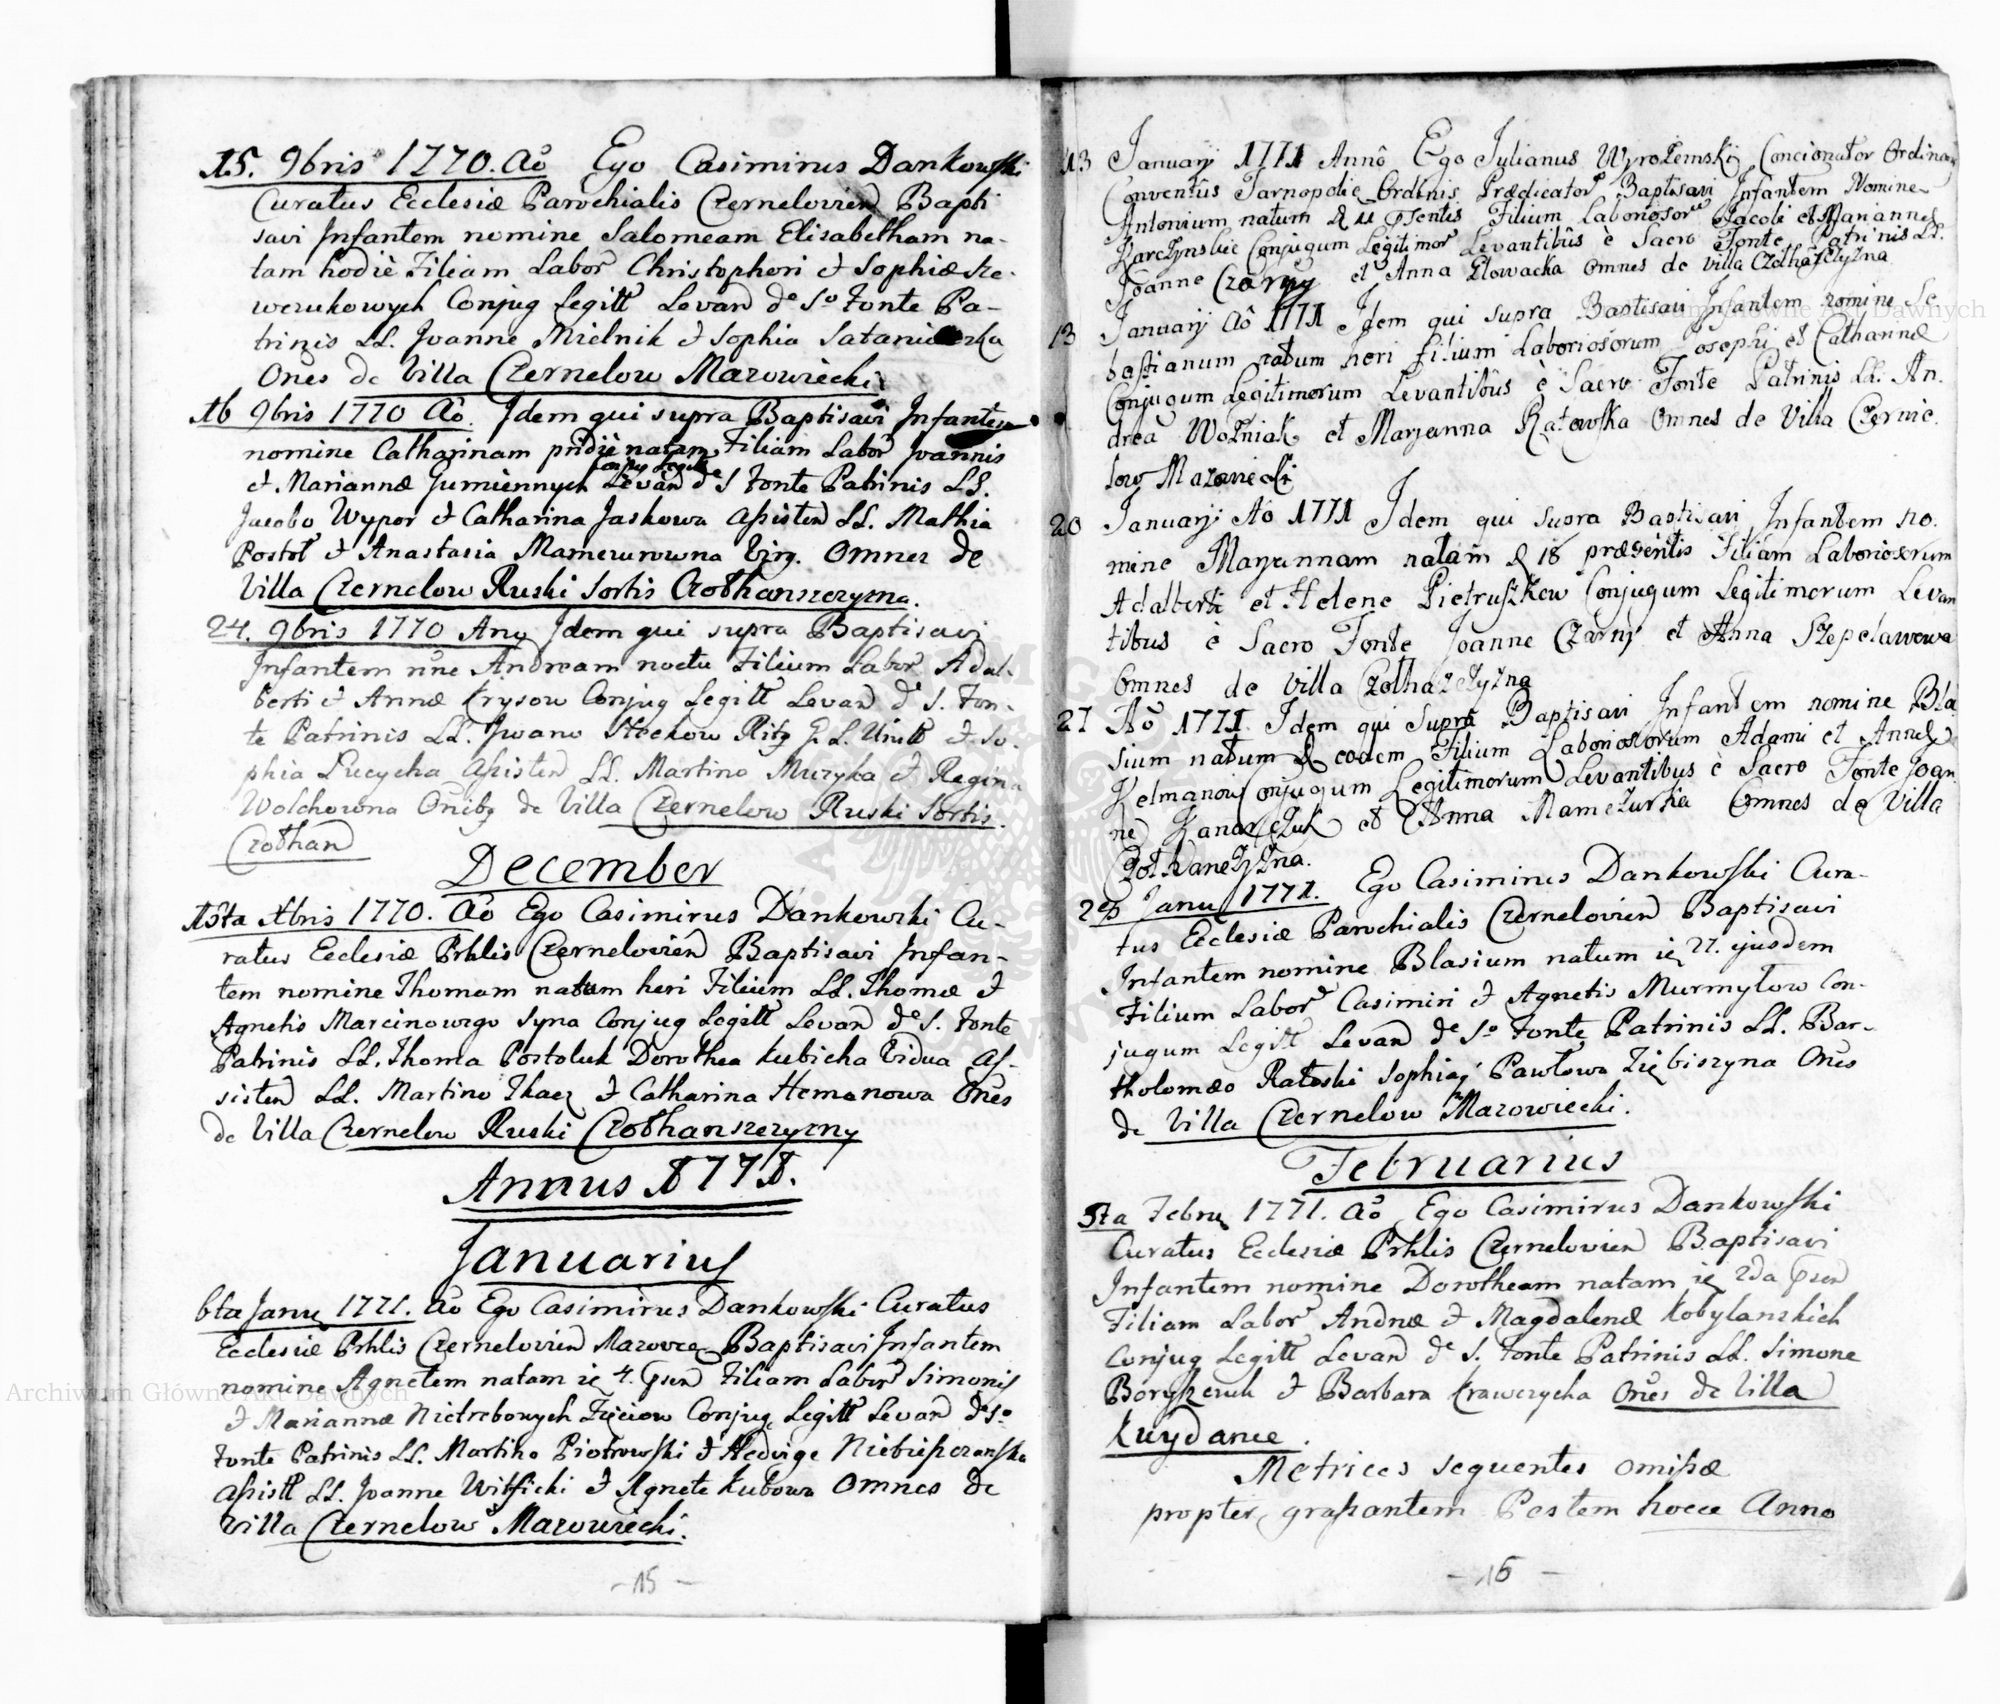 15. 9bris 1770. Aô Ego Casimirus Dankowski
Curatus Ecclesiæ Parochialis Czernelovien Bapti
savi Infantem nomine Salomeam Elisabetham na-
tam hodiè Filiam Labor Christophori et Sophiæ Sze-
wczukowych Conjug Legitt Levan de So Fonte Pa-
trinis LL. Joanne Mielnik et Sophia
Ones de Villa Czernelow Mazowiecki
16 9bris 1770 Aô. Idem qui supra Baptisavi Infantem
nomine Catharinam pridiè natam Filiam Labor Joannis
Conjug Legitt
et Mariannæ Gumiennych Levan de S Fonte Patrinis LL.
Jacobo Wypor et Catharina Jaskowa Assisten LL. Mathia
Postoł et Anastasia Virg. Omnes de
Villa Czernelow Ruski Sortis Czołhanszczyzna.
24. 9bris 1770 Idem qui supra Baptisavi
Infantem nne Andream noctu Filium Labor Adal-
berti et Annæ Krysow Conjug Legitt Levan de S. Fon-
te Patrinis LL. Iwano et So-
phia Assisten LL. Martino Muzyka et Regina
Wolchowna de Villa Czernelow Ruski Sortis.
Czołhan
December
1sta Xbris 1770. Aô Ego Casimirus Dankowski Cu-
ratus Ecclesiæ Prhlis Czernelovien Baptisavi Infan-
tem nomine Thomam natum heri Filium LL. Thomæ et
Agnetis Marcinowego Syna Conjug Legitt Levan de S. Fonte
Patrinis LL. Thoma Postoluk Dorothea Kubicha Vidua As-
sisten LL. Martino Tkacz et Catharina Hemanowa Ones
de Villa Czernelow Ruski Czołhanszczyzny
Annus 1771.
Januarius
6ta Janu 1771. Aô Ego Casimirus Dankowski Curatus
Ecclesiæ Prhlis Czernelovien Baptisavi Infantem
nomine Agnetem natam 4. Filiam Labor Simonis
et Mariannæ Conjug Legitt Levan de So
Fonte Patrinis LL. Martino Piotrowski et Hedvige
Assistt LL. Joanne Witficki et Agnete Kubowa Omnes de
Villa Czernelow Mazowiecki.
-15-
13 Januarij 1771 Annô Ego Julianus Concionator Ordinar
Conventûs Tarnopolie Ordinis Prædicator Baptisavi Infantem Nomine
Antonium natum Filium Laboriosor Jacobi et Mariannes
Conjugum Legitimor Levantibûs è Sacro Fonte Patrinis LL.
Joanne Czarny et Anna Głowacka Omnes de Villa
13 Januarij Aô 1771 Idem qui supra Baptisavi Infantem nomine Se
bastianum natum heri filium Laboriosorum Josephi et Catharinæ
Conjugum Legitimorum Levantibûs è Sacro Fonte Patrinis LL. An.
drea Woźniak et Maryanna Omnes de Villa Czernie.
low Mazowiecki
20 Januarij Aô 1771 Idem qui supra Baptisavi Infantem no.
mine Maryannam natam 18 præsentis Filiam Laboriosorum
Adalberti et Helene Pietruszkow Conjugum Legitimorum Levan
tibus è Sacro Fonte Joanne Czarny et Anna
Omnes de Villa
27 Aô 1771. Idem qui supra Baptisavi Infantem nomine Bla
sium natum eodem Filium Laboriosorum Adami et Anne
Conjugum Legitimorum Levantibus è Sacro Fonte Joan
ne et Anna Omnes de Villa
Janu 1771. Ego Casimirus Dankowski Cura-
tus Ecclesiæ Parochialis Czernelovien Baptisavi
Infantem nomine Blasium natum 27. ejusdem
Filium Labor Casimiri et Agnetis Murmyłow Con-
jugum Legitt Levan de So Fonte Patrinis LL. Bar-
tholomæo Ratoski Sophia Pawłowa Ones
de Villa Czernelow Mazowiecki.
Februarius
5ta Febru 1771. Aô Ego Casimirus Dankowski
Curatus Ecclesiæ Prhlis Czernelovien Baptisavi
Infantem nomine Dorotheam natam 2da
Filiam Labor Andræ et Magdalenæ Kobylanskich
Conjug Legitt Levan de S. Fonte Patrinis LL. Simone
Boryszczuk et Barbara Krawczycha Ones de Villa
Kuydance.
Metrices sequentes omissæ
propter grassantem Pestem hocce Anno
-16-
Archiwum Główne Akt Dawnych
Archiwum Główne Akt Dawnych